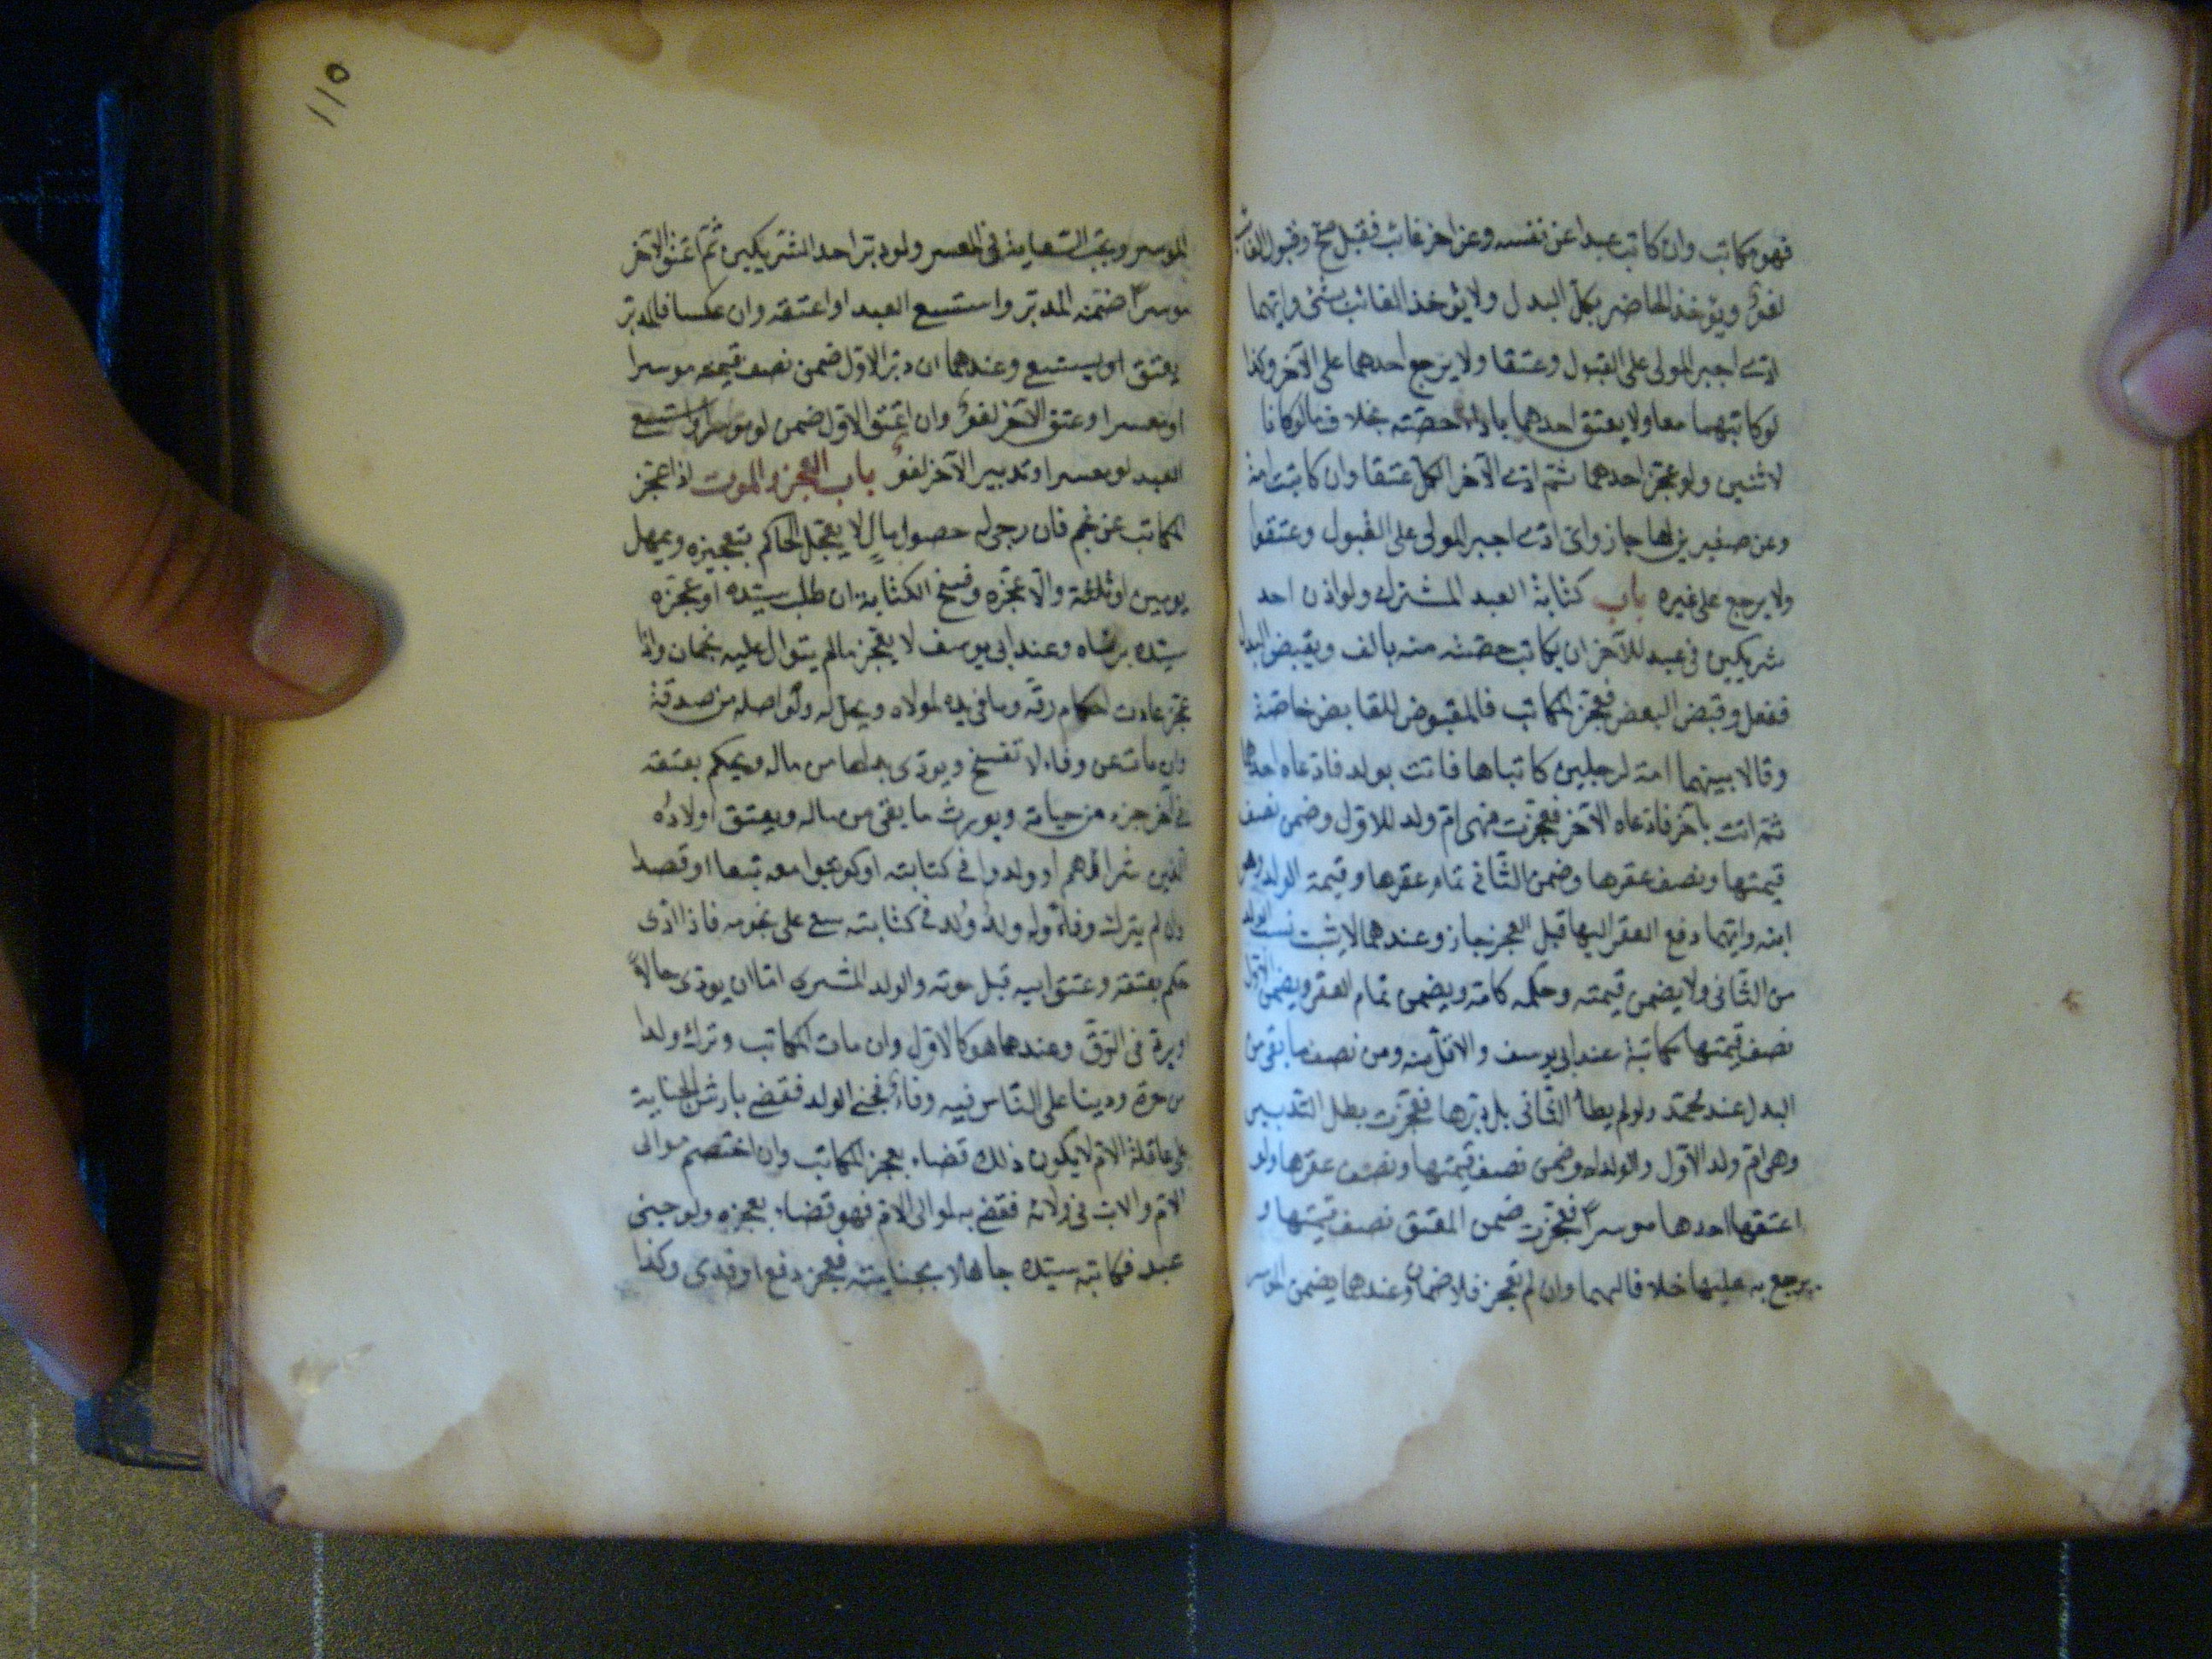 فهو مكاتب وان كاتب عبدا عن نفسه وعن اخر غائب فقبل صح وقبول الغائب
لغو ويؤخذ الحاضر بكل البدل ولا يؤخذ الغائب بشئ وايهما
ادى اجبر المولى على القبول وعتقا ولا يرجع احدهما على الآخر وكذا
لو كاتبهما معا ولا يعتق احدهما باداء حصته بخلاف ما لو كانا
لاثنين ولو عجز احدهما ثم ادى الآخر الكل عتقا وان كاتبت امة
وعن صغيرين لها جاز واى ادى اجبر المولى على القبول وعتقوا
ولا يرجع على غيره باب كتابة العبد المشترك ولو اذن احد
شريكين فى عبد للآخر ان يكاتب حصته منه بالف ويقبض البدل
ففعل وقبض البعض فعجز المكاتب فالمقبوض للقابض خاصة
وقالا بينهما امة لرجلين كاتباها فاتت بولد فادعاه احدهما
ثم اتت بآخر فادعاه الآخر فعجزت فهى ام ولد للاول وضمن نصف
قيمتها ونصف عقرها وضمن الثانى تمام عقرها وقيمة الولد وهو
ابنه وايهما دفع العقر اليها قبل العجز جاز وعندهما لا يثبت نسب الولد
من الثانى ولا يضمن قيمته وحكمه كامه ويضمن تمام العقر ويضمن الاول
نصف قيمتها مكاتبة عند ابى يوسف والاقل منه ومن نصف ما بقى من
البدل عند محمد ولو لم يطأ الثانى بل دبرها فعجزت بطل التدبير
وهى ام ولد الاول والولد له وضمن نصف قيمتها ونصف عقرها ولو
اعتقها احدهما موسرا فعجزت ضمن المعتق نصف قيمتها و
يرجع به عليها خلافا لهما وان لم تعجز فلا ضمان وعندهما يضمن الموسر
١١٥
الموسر وتجب السعاية فى المعسر ولو دبر احد الشريكين ثم اعتق الآخر
موسرا ضمنه المدبر واستسع العبد او اعتقه وان عكسا فالمدبر
يعتق او يستسع وعندهما ان دبر الاول ضمن نصف قيمته موسرا
او معسرا وعتق الآخر لغو وان اعتق الاول ضمن لو موسرا واستسع
العبد لو معسرا وتدبير الآخر لغو باب العجز والموت اذا عجز
المكاتب عن نجم فان رجى له حصول مال لا يعجل الحاكم بتعجيزه ويمهل
يومين او ثلثة والا عجزه وفسخ الكتابة ان طلب سيده او عجزه
سيده برضاه وعند ابى يوسف لا يعجز ما لم يتوال عليه نجمان واذا
عجز عادت احكام رقه وما فى يده لمولاه ويحل له ولو اصله من صدقة
وان مات عن وفاء لا تفسخ ويؤدى بدلها من ماله ويحكم بعتقه
فى آخر جزء من حياته ويورث ما بقى من ماله ويعتق اولاده
الذين شراهم او ولدوا فى كتابته او كوتبوا معه تبعا او قصدا
وان لم يترك وفاء وله ولد ولد فى كتابته سع على نجومه فاذا ادى
حكم بعتقه وعتق ابيه قبل موته والولد المشرى اما ان يؤدى حالا
او يرد فى الرق وعندهما هو كالاول وان مات المكاتب وترك ولدا
من حرة ودينا على الناس فيه وفاء فجنى الولد فقضى بارش الجناية
على عاقلة الام لا يكون ذلك قضاء بعجز المكاتب وان اختصم موالى
الام والاب فى ولائه فقضى به لموالى الام فهو قضاء بعجزه ولو جنى
عبد فكاتبه سيده جاهلا بجنايته فعجز دفع او فدى وكذا